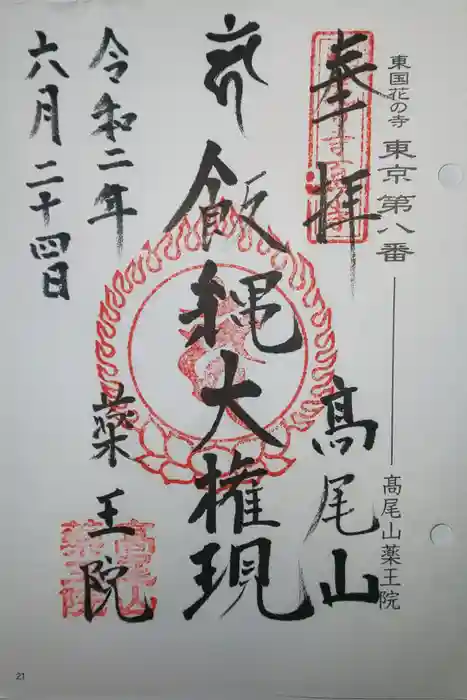 東国花の寺 東京 第八番 髙尾山薬王院
奉拝 髙尾山
飯縄大権現
薬王院
令和二年
六月二十四日
髙尾山
薬王院
21